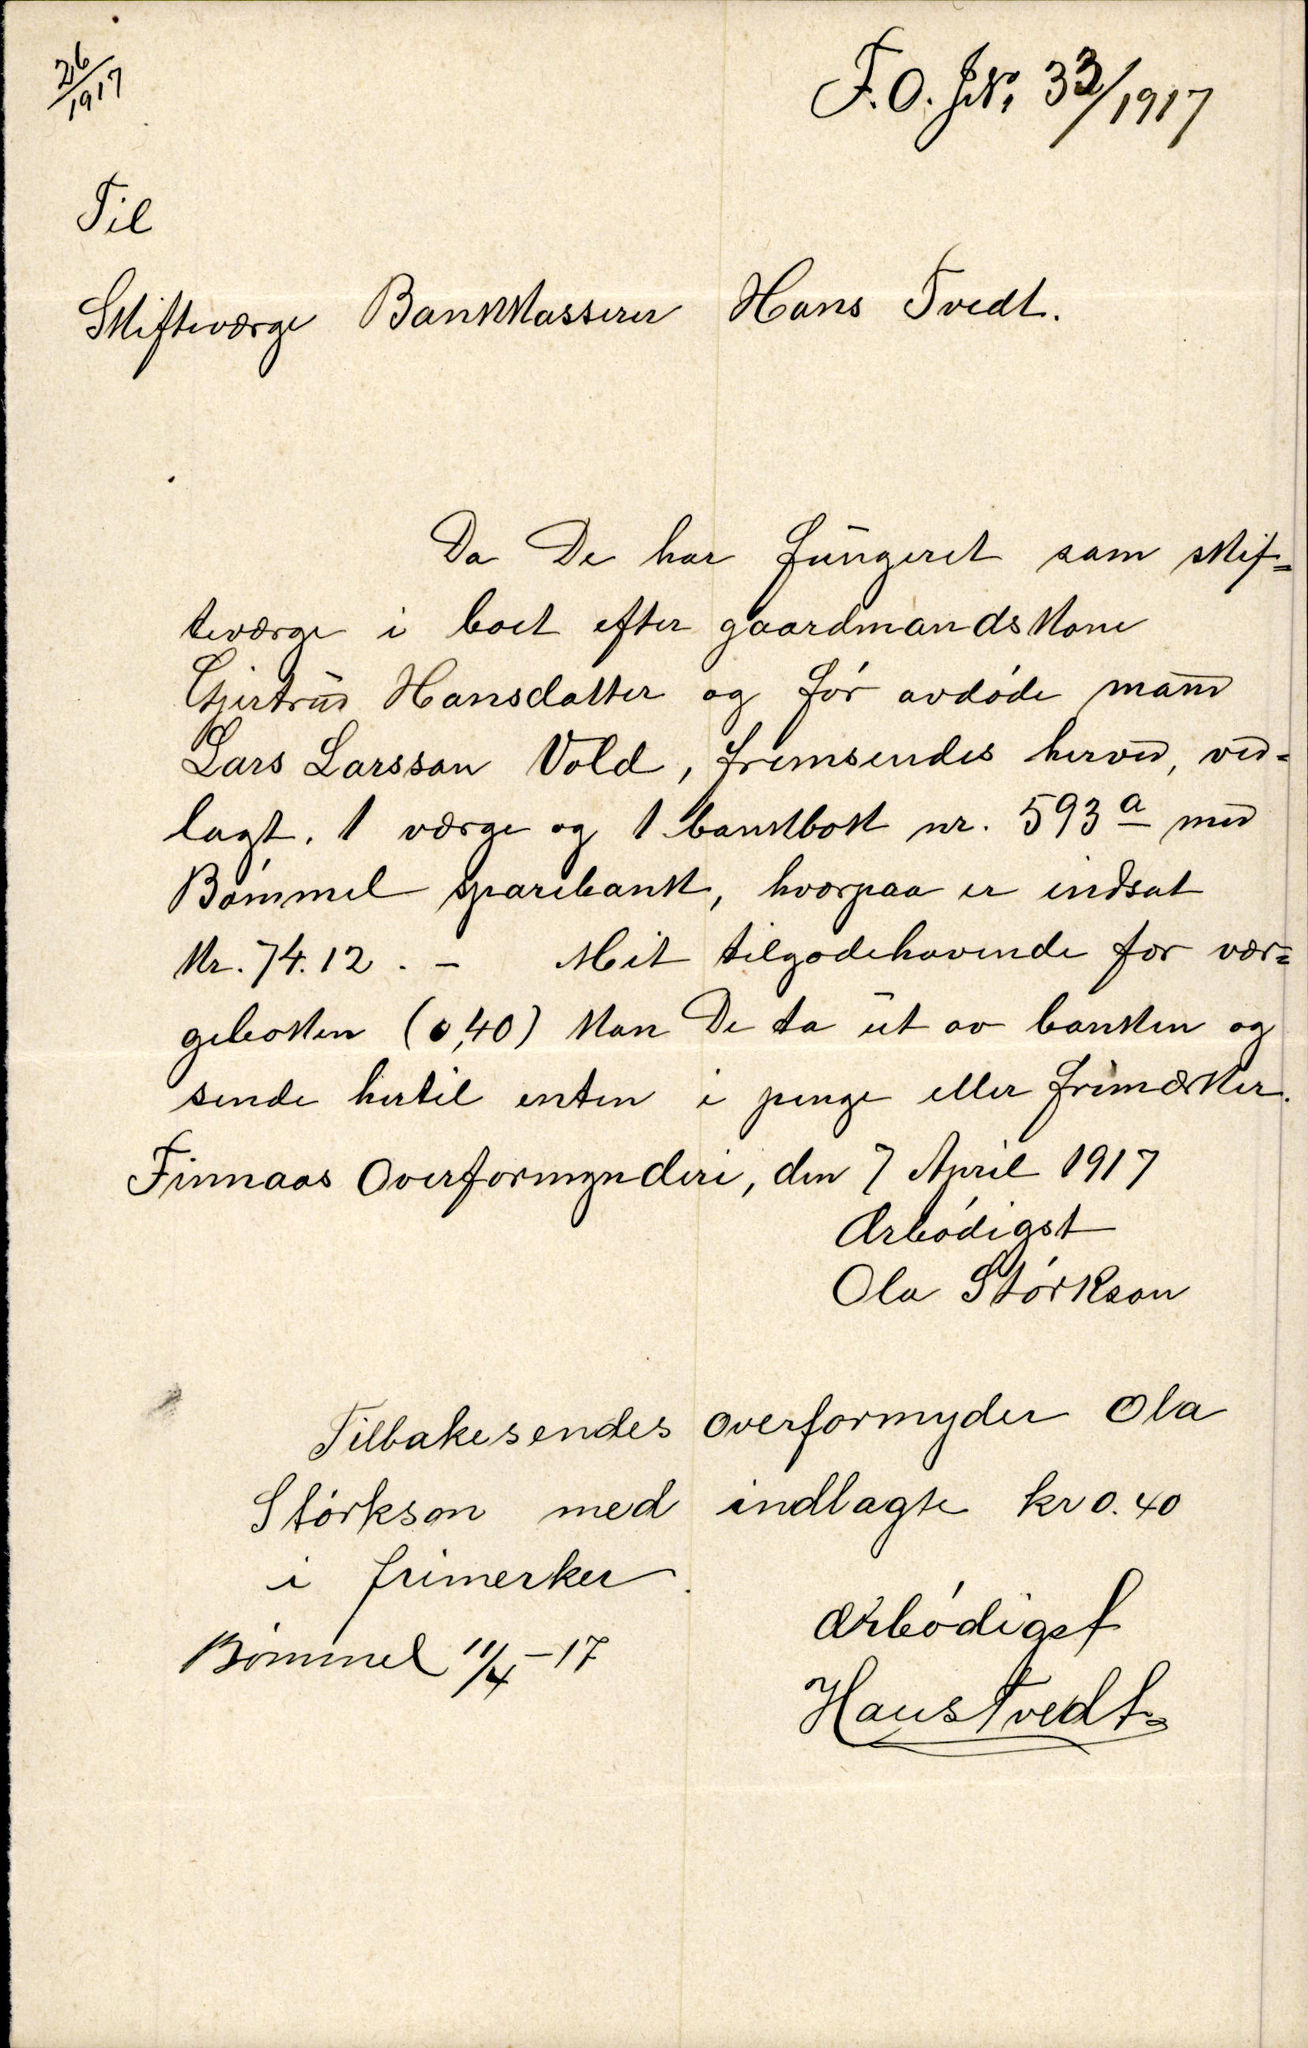 26/1917
F.O. J.Nr. 33/1917
Til
Skifteværge Bankkasserer Hans Tvedt.
Da De har fungeret som skif=
teværge i boet efter gaardmandskone
Gjertrud Hansdatter og før avdøde mand
Lars Larsson Vold, fremsendes herved, ved=
lagt. 1 værge og 1 bankbok nr. 593 a med
Bømmel sparebank, hvorpaa er indsat
kr. 74.12. – Mit tilgodehavende for vær=
geboken (0,40) kan De ta ut av banken og
sende hertil enten i penge eller frimærker.
Finnaas Overformynderi, den 7 April 1917
Ærbødigst
Ola Størkson
Tilbakesendes overformyder Ola
Størkson med indlagte kr 0.40
i frimerker.
Bømmel 11/4 – 17
Ærbødigst
Hans Tvedt